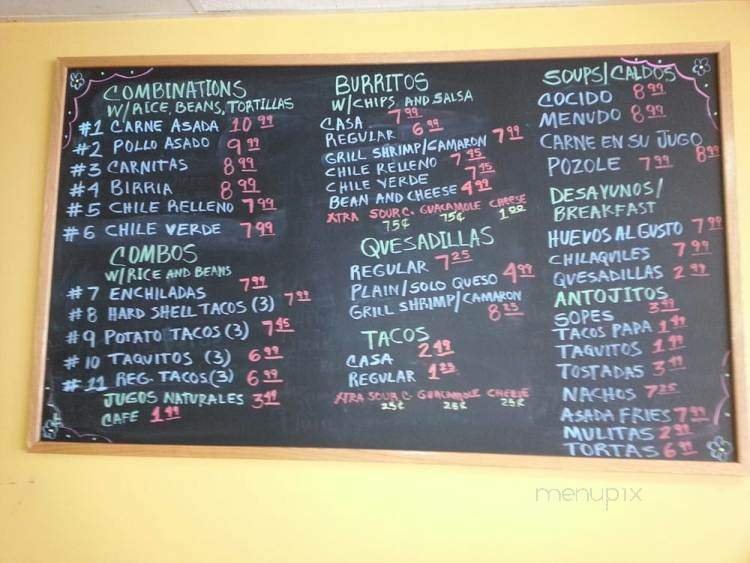 COMBINATIONS
W/RICE, BEANS, TORTILLAS
#1 CARNE ASADA 10 99
#2 POLLO ASADO 9 99
#3 CARNITAS 8 99
#4 BIRRIA 8 99
#5 CHILE RELLENO 7 99
#6 CHILE VERDE 7 99
COMBOS
W/RICE AND BEANS
#7 ENCHILADAS 7 99
#8 HARD SHELL TACOS (3) 7 99
#9 POTATO TACOS (3) 7 45
#10 TAQUITOS (3) 6 99
#11 REG. TACOS (3) 6 99
JUGOS NATURALES 3 49
CAFE 1 99
BURRITOS
W/CHIPS, AND SALSA
CASA 7 99
REGULAR 6 99
GRILL SHRIMP/CAMARON 7 99
CHILE RELLENO 7 45
CHILE VERDE 7 45
BEAN AND CHEESE 4 99
XTRA SOUR C. GUACAMOLE CHEESE
75¢ 75¢ 1 00
QUESADILLAS
REGULAR 7 25
PLAIN/SOLO QUESO 4 99
GRILL SHRIMP/CAMARON
8 25
TACOS
CASA 2 49
REGULAR 1 25
XTRA SOUR C. GUACAMOLE CHEESE
25¢ 25¢ 25¢
SOUPS/CALDOS
COCIDO 8 99
MENUDO 8 99
CARNE EN SU JUGO
8 99
POZOLE 7 99
DESAYUNOS/
BREAKFAST
HUEVOS AL GUSTO 7 99
CHILAQUILES 7 99
QUESADILLAS 2 99
ANTOJITOS
SOPES 3 49
TACOS PAPA 1 49
TAQUITOS 1 99
TOSTADAS 3 49
NACHOS 7 25
ASADA FRIES 7 99
MULITAS 2 99
TORTAS 6 99
menupix